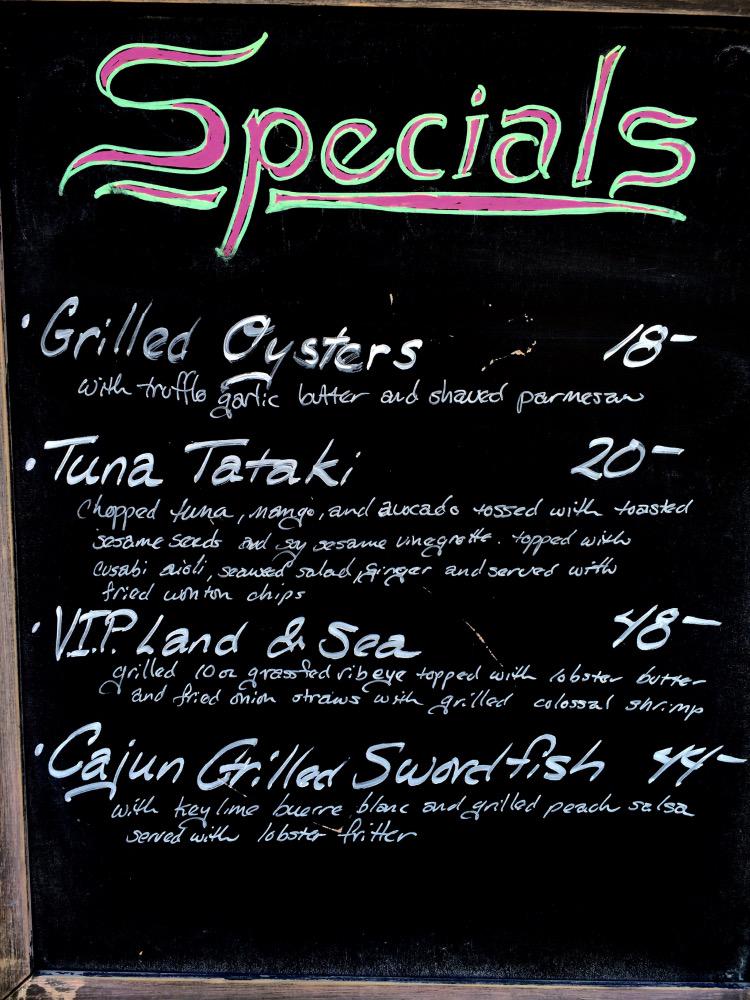 Specials
· Grilled Oysters 18-
with truffle garlic butter and shaved parmesan
· Tuna Tataki 20-
Chopped tuna, mango, and avocado tossed with toasted
sesame seeds and soy sesame vinegrette. topped with
cusabi aioli, seaweed salad, ginger and served with
fried wonton chips
· V.I.P. Land & Sea 48-
grilled 10oz grassfed ribeye topped with lobster butter
and fried onion straws with grilled colossal shrimp
· Cajun Grilled Swordfish 44-
with key lime buerre blanc and grilled peach salsa
served with lobster fritter